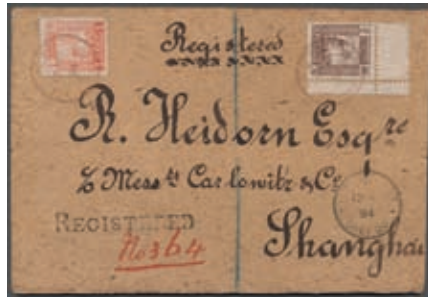 Registered
R. Heidorn Esqre
℅ Messrs Carlowitz & Co
REGISTERED
No 364
Shanghai